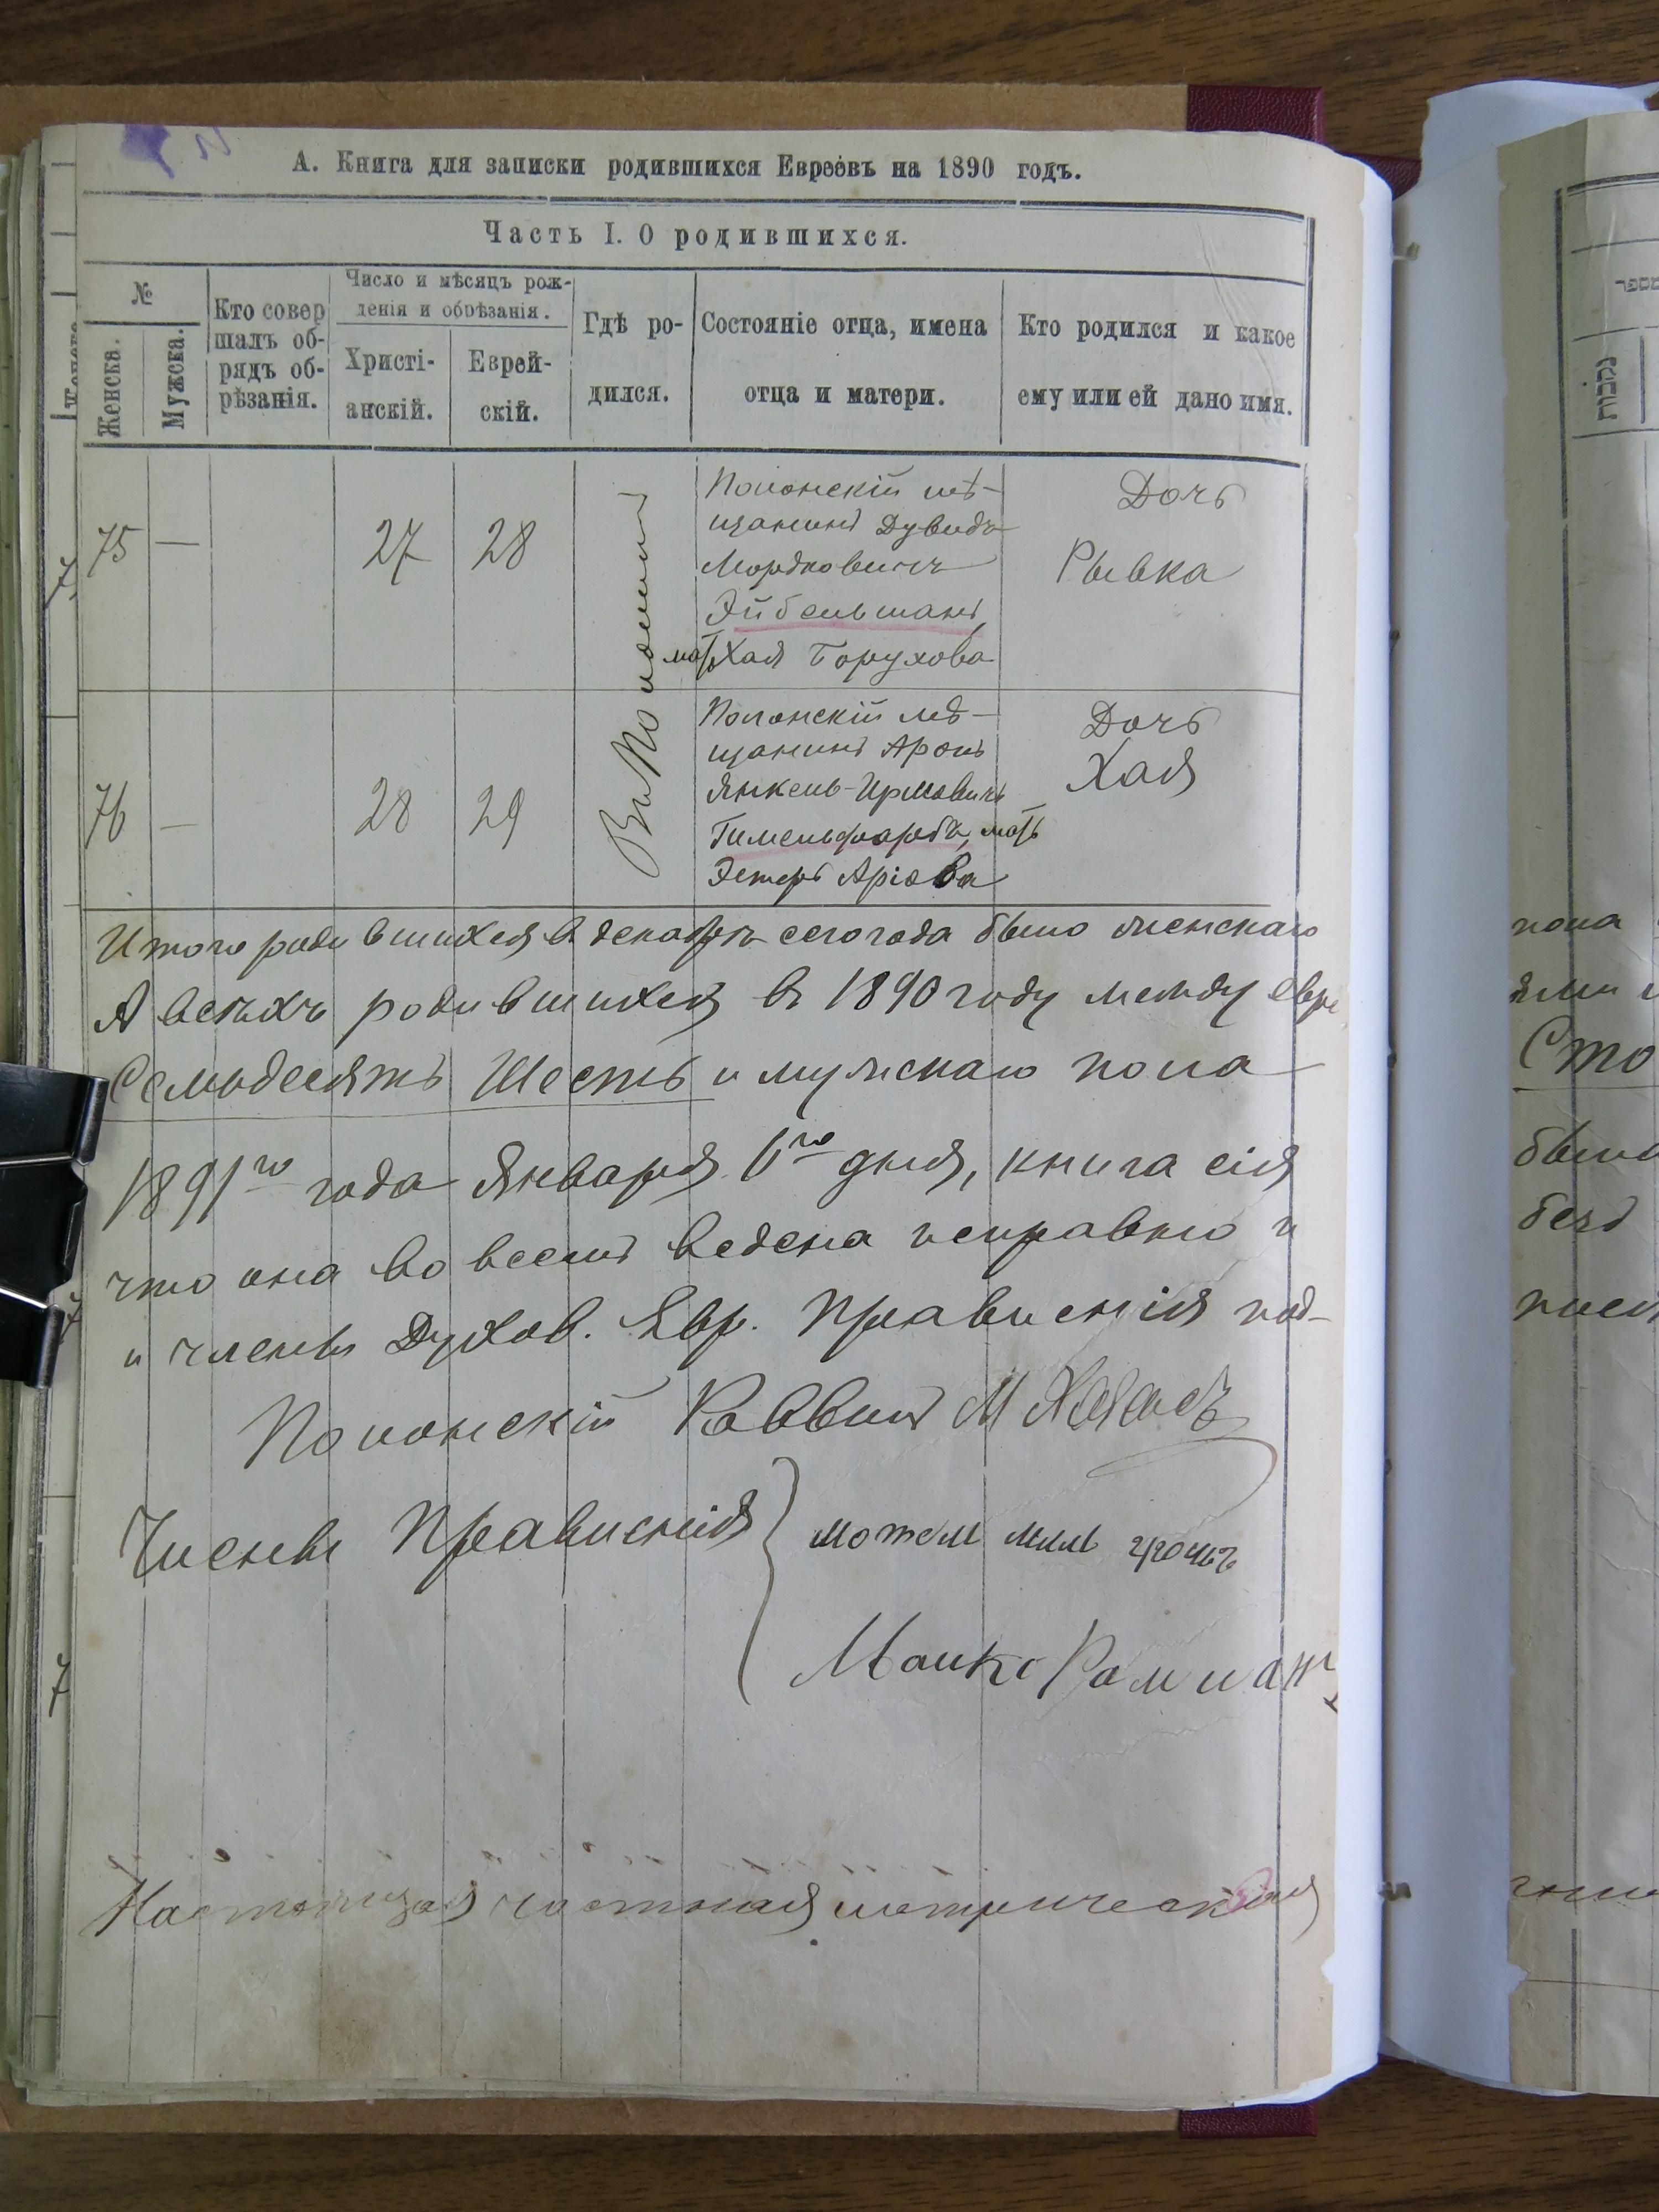 А. Книга для записки родившихся Евреевъ на 1890 годъ.
Часть I. О родившихся.
№
Женска.
Мужска.
Кто совер
шалъ об-
рядъ об-
рѣзанія.
Число и мѣсяцъ рож-
денія и обрѣзанія.
Христі-
анскій.
Еврей-
скій.
Гдѣ ро-
дился.
Состояніе отца, имена
отца и матери.
Кто родился и какое
ему или ей дано имя.
75
—
27
28
Полонскій мѣ-
щанинъ Дувидъ
Мордковичъ
Эйбельманъ,
мать Хая Борухова
Дочь
Рывка
76
—
28
29
Полонскій мѣ-
щанинъ Аронъ
Янкель-
Гимельфарбъ, мать
Эстеръ
Дочь
Хая
Итого родившихся въ декабрѣ сего года было женскаго
А всѣхъ родившихся въ 1890 году между евре
Семьдесятъ Шесть и мужскаго пола
1891го года Января 6го дня, книга сія
что она во всемъ ведена исправно и
и члены Духов. Евр. Правленія под-
Полонскій Раввинъ М
Члены Правленія
Настоящая частная метрическая
пола
ями
Сто
было
безъ
נקבות